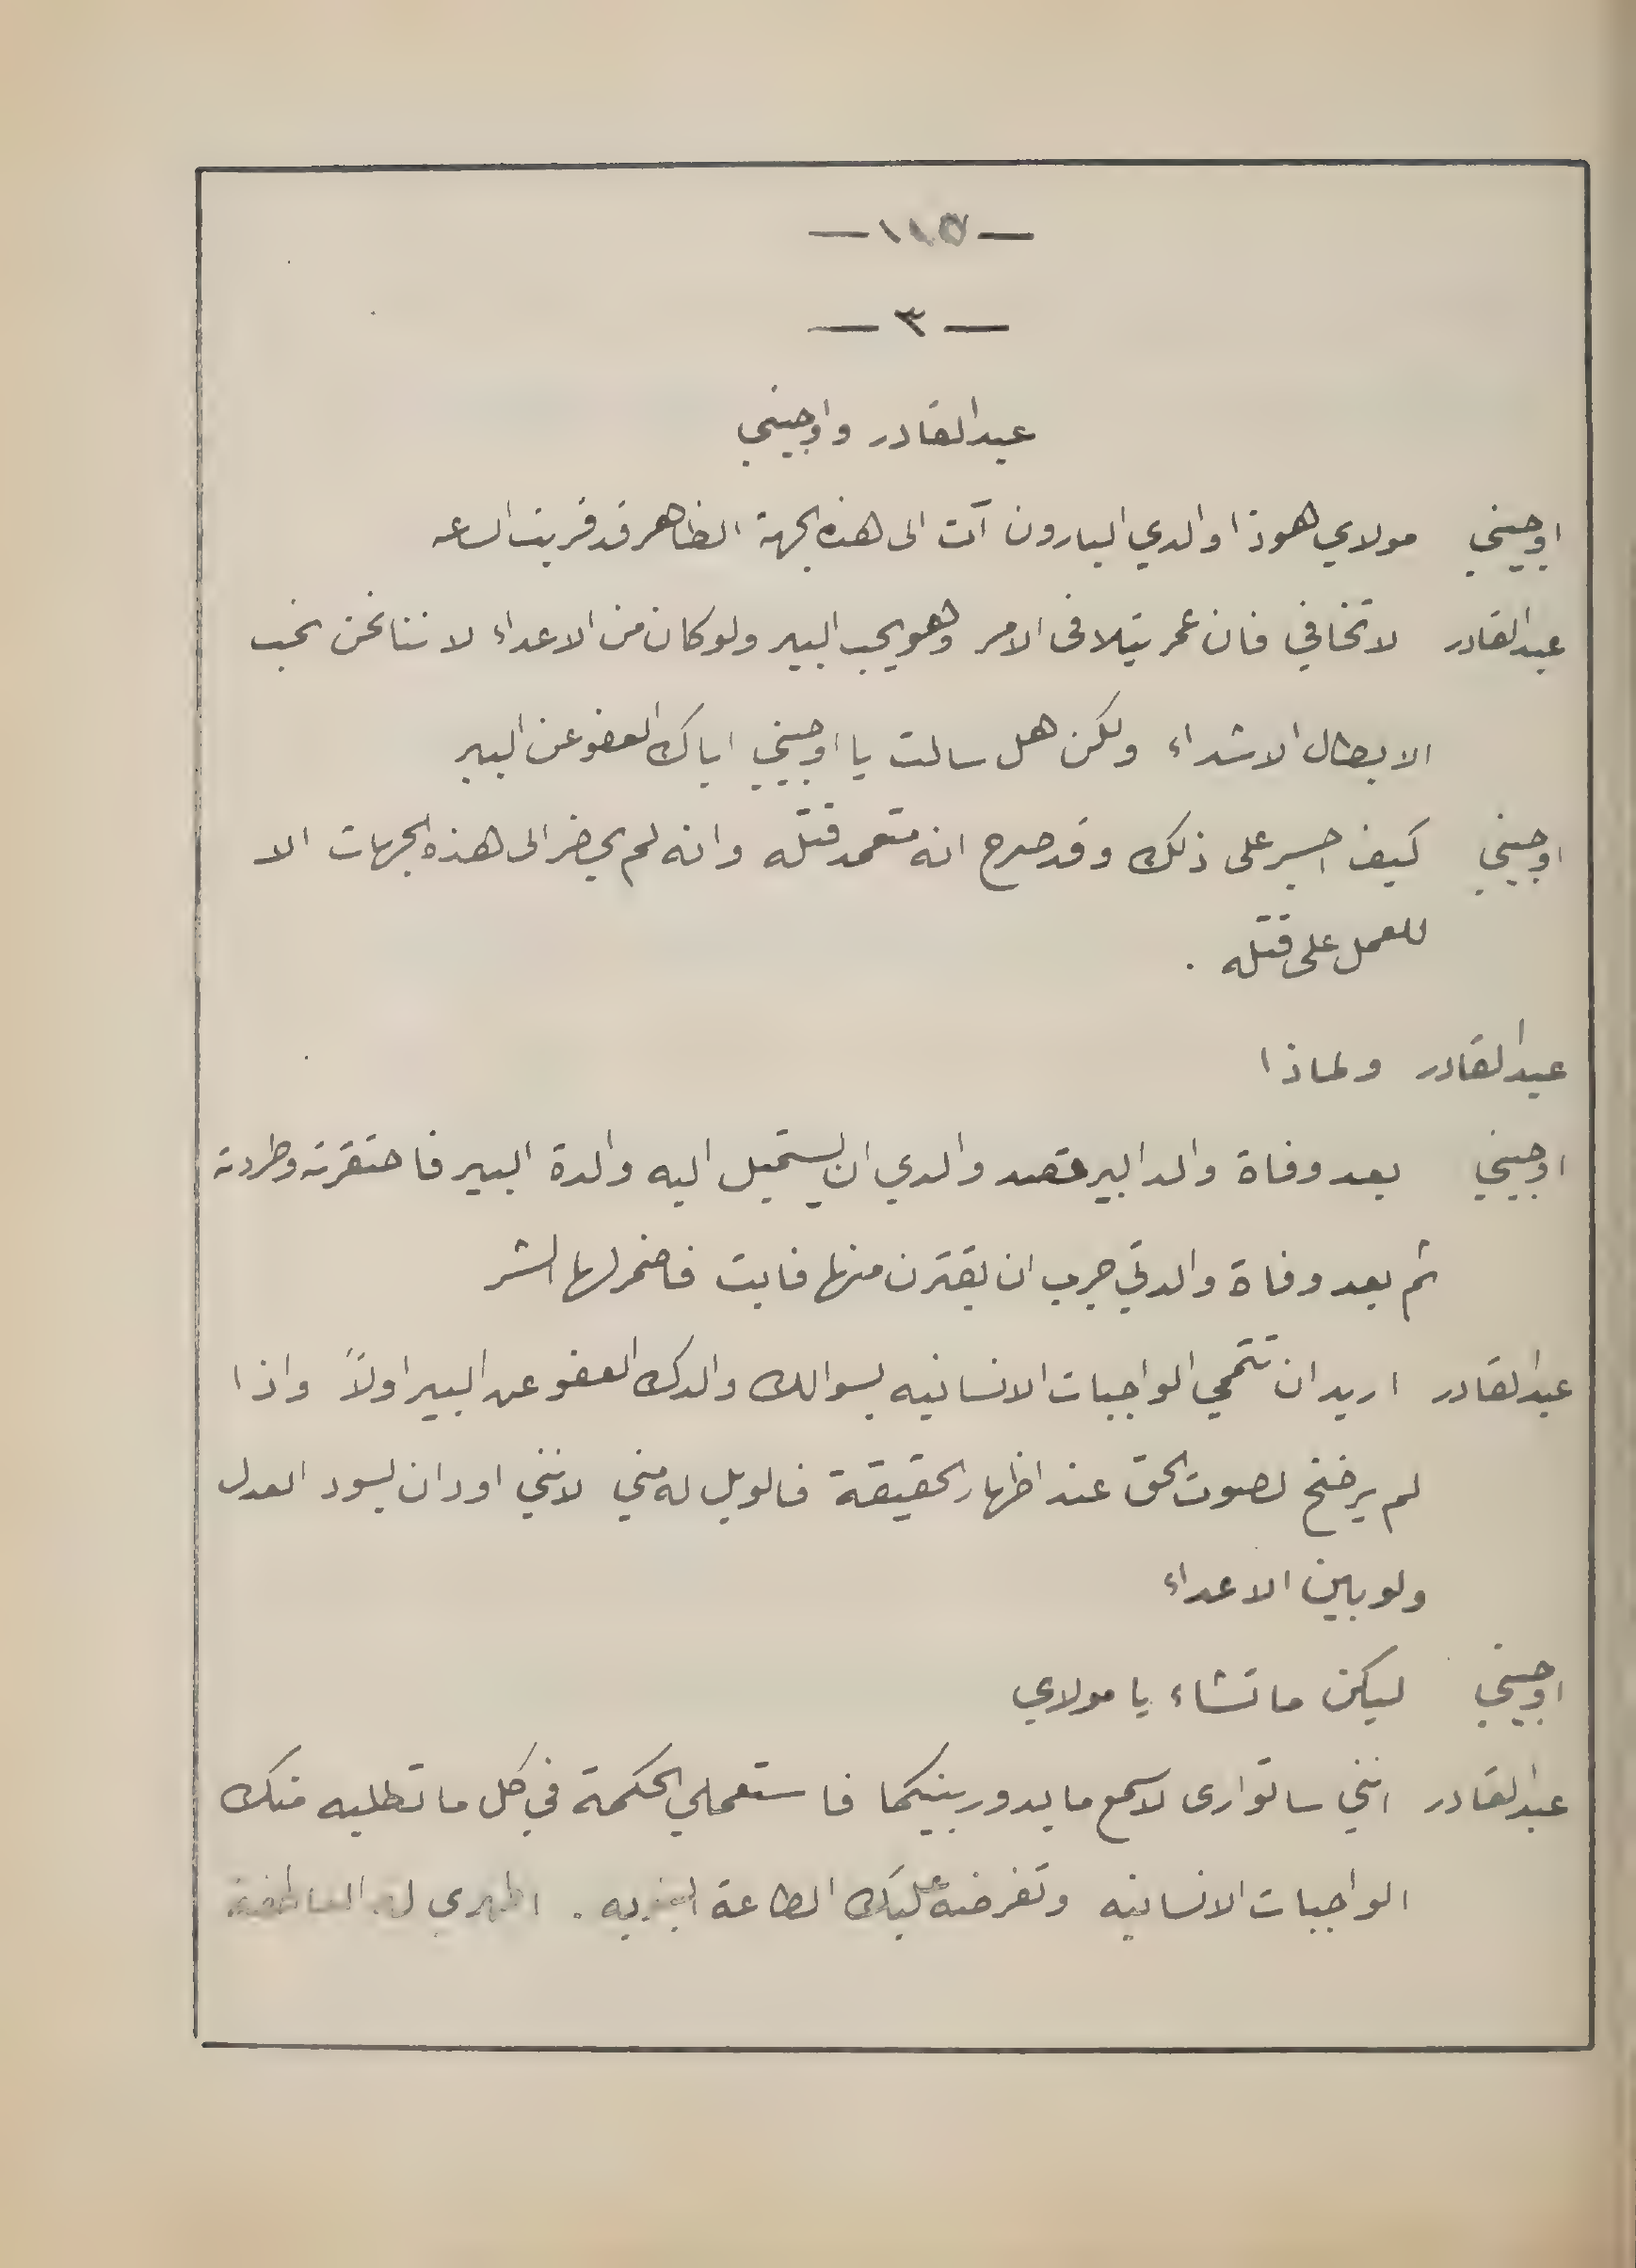 — ١١٥ —
— ٣ —
عبدالقادر واوجيني
اوجيني مولاي هوذا والدي البارون آت الى هذه الجهة الظاهر قد قربت الساعه
عبدالقادر لا تخافي فان عمر يتلافى الامر وهو يحب البير ولو كان من الاعداء لاننا نحن نحب
الابطال الاشداء ولكن هل سالت يا اوجيني اباك العفو عن البير
اوجيني كيف اجسر على ذلك وقد صرح انه متعمد قتله وانه لم يحضر الى هذه الجهات الا
للعمل على قتله .
عبدالقادر ولماذا
اوجيني بعد وفاة والد البير قصد والدي ان يستميل اليه والدة البير فاحتقرته وطردته
ثم بعد وفاة والدتي جرب ان يقترن منها فابت فاضمر لها الشر
عبدالقادر اريد ان تتممي الواجبات الانسانيه بسوالك والدك العفو عن البير اولاً واذا
لم يرضخ لصوت الحق عند اظهار الحقيقة فالويل له مني لانني اود ان يسود العدل
ولو بين الاعداء
اوجيني ليكن ما تشاء يا مولاي
عبدالقادر انني ساتوارى لاسمع ما يدور بينكما فاستعملي الحكمة في كل ما تطلبه منك
الواجبات الانسانيه وتفرضه عليك الطاعة البنويه . اظهري له العاطفة